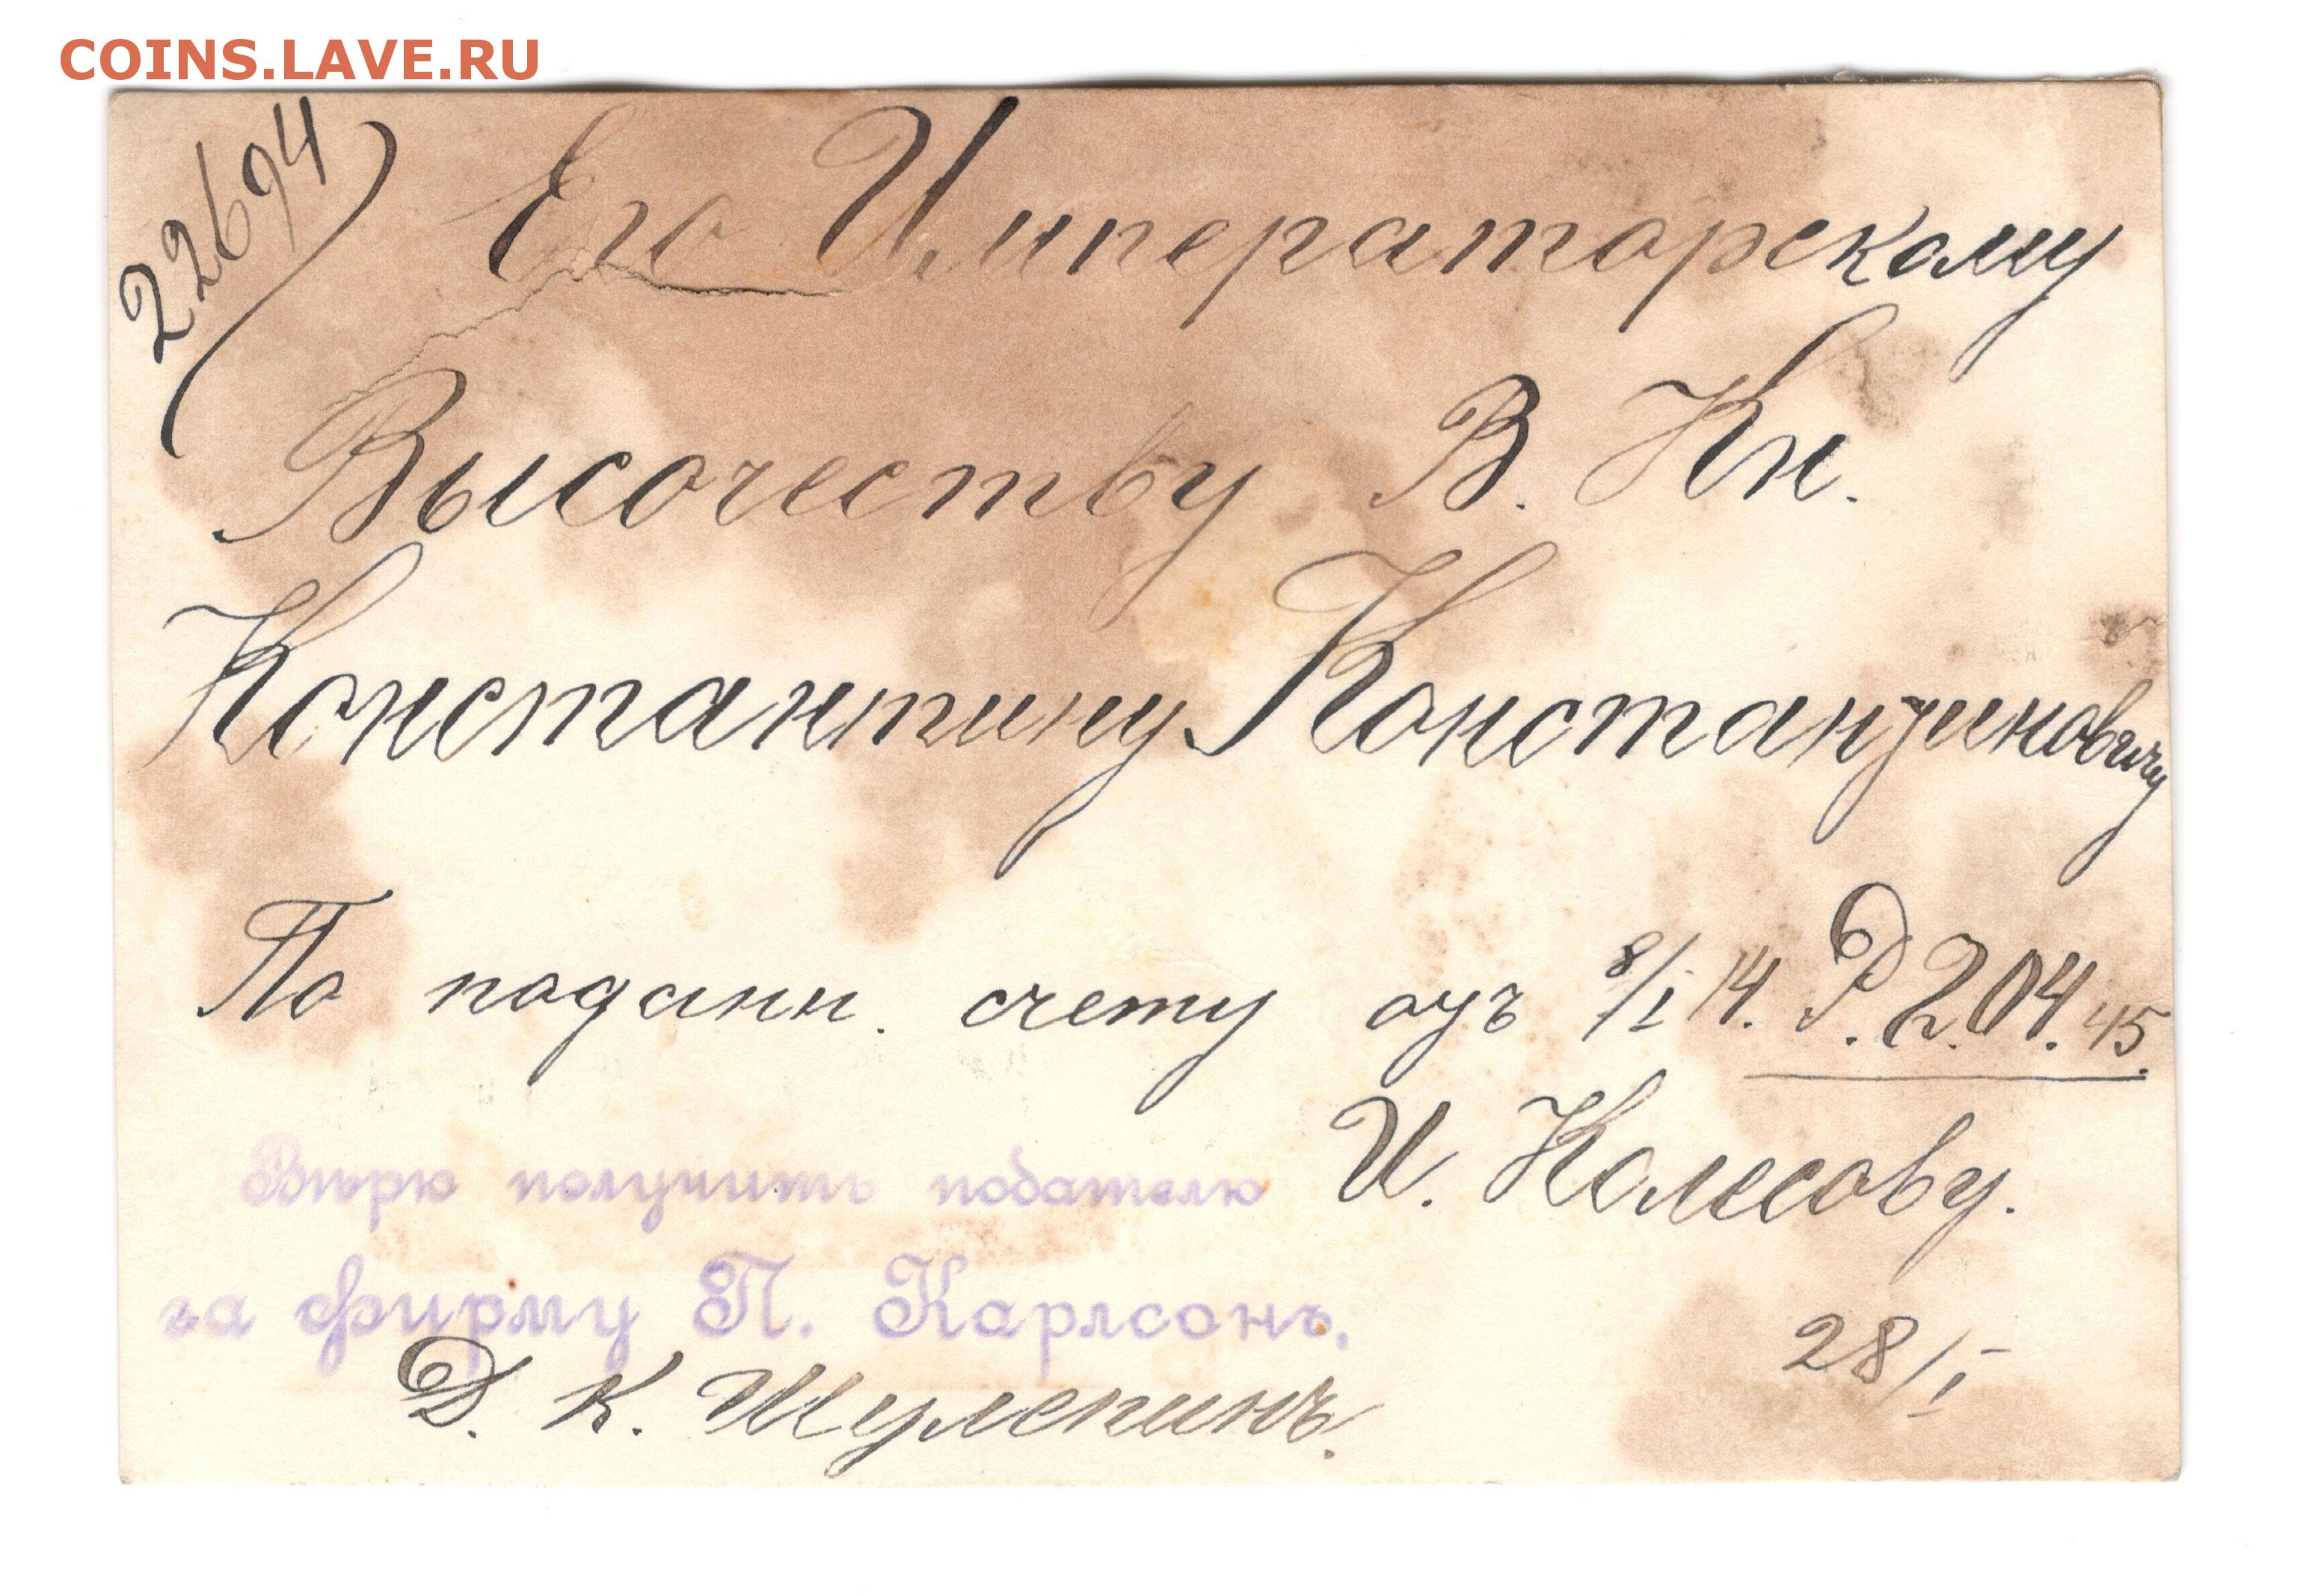 COINS.LAVE.RU
22694
Его Императорскому
Высочеству В. Кн.
Константину Константиновичу
По подан н. счету отъ 8/I 14. Р. 204.45.
И. Колесову.
Вѣрю получить подателю
за фирму П. Карлсонъ.
28/I
Д. К. Шулепинъ.